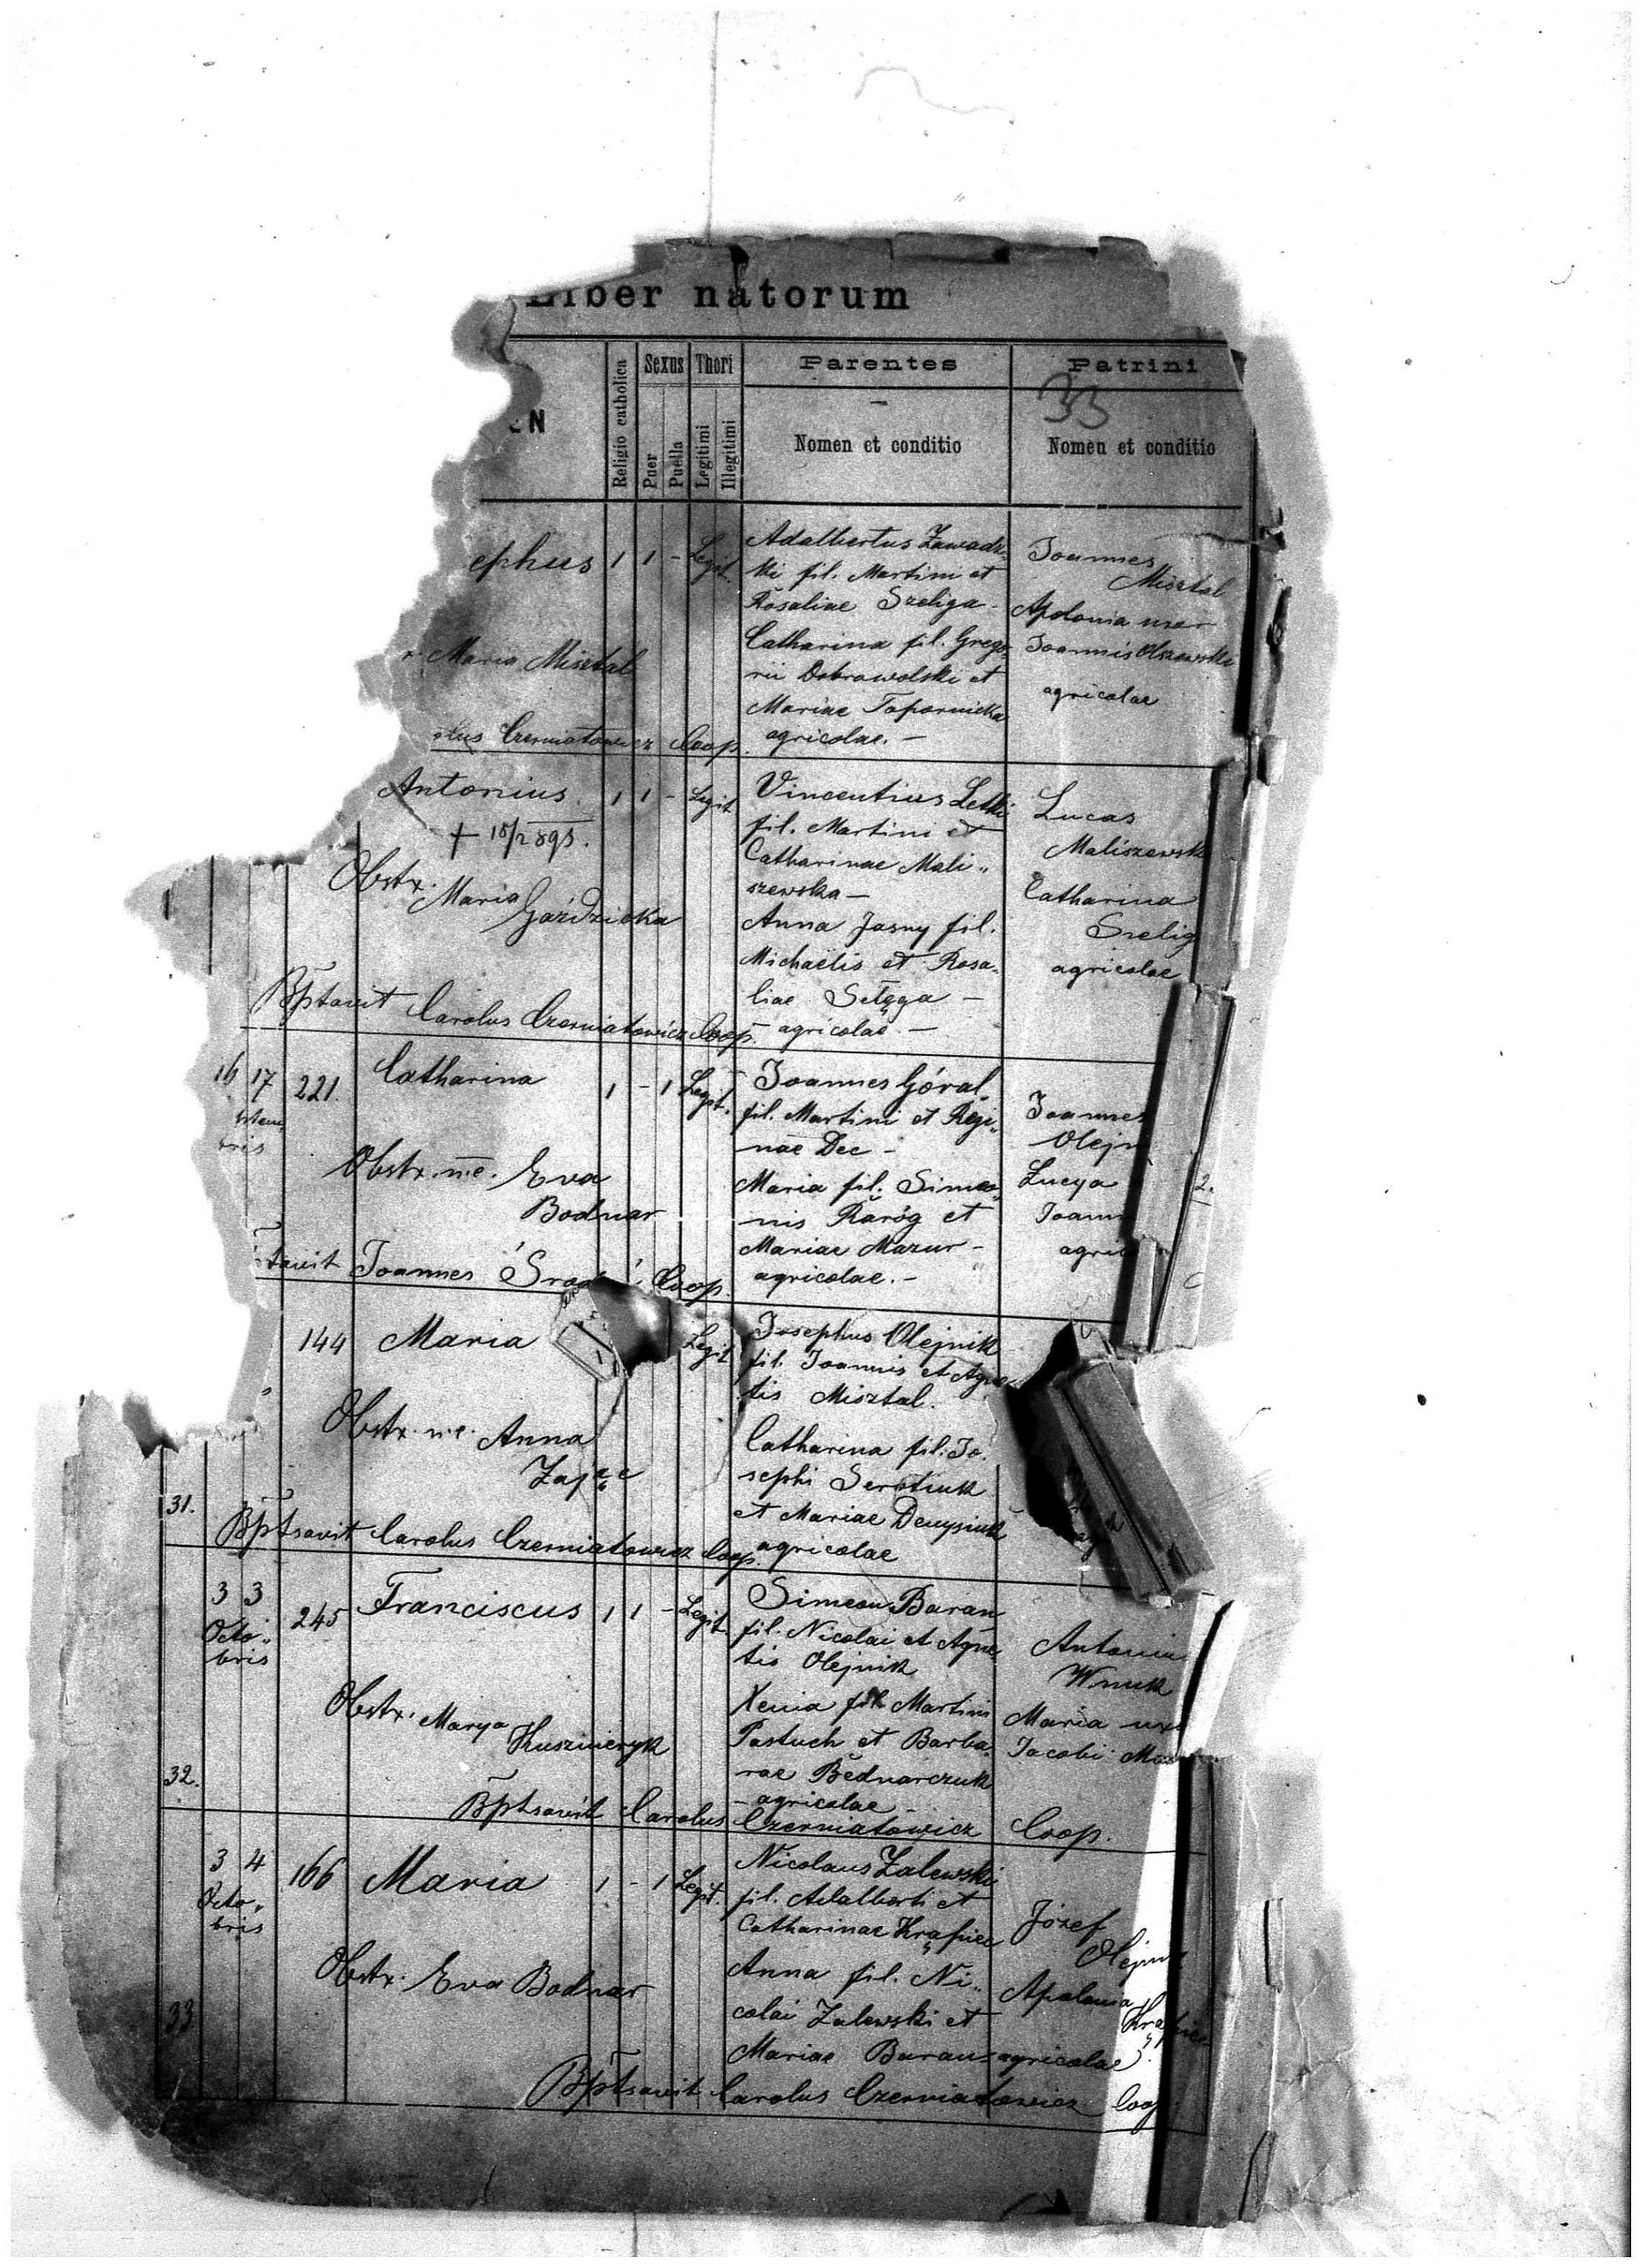 Liber natorum
Religio catholica
Sexus
Puer
Puella
Thori
Legitimi
Illegitimi
Parentes
Nomen et conditio
Patrini
33
Nomen et conditio
ephus 1 1 - Legit.
Maria Misztal
Czerniatowicz Coop.
Adalbertus Zawadz-
ki fil. Martini et
Rosaliae Szeliga -
Catharina fil. Grego-
rii Dobrowolski et
Mariae Topornicka
agricolae. -
Joannes
Misztal
Apolonia uxor
Joannis Olszewski
agricolae
Antonius 1 1 - Legit
Obstx. Maria
Gaździcka
Bptsavit Carolus Czerniatowicz Coop.
Vincentius Letki
fil. Martini et
Catharinae Mali„
szewska -
Anna Jasny fil.
Michaëlis et Rosa„
liae Sętęga -
agricolae. -
Lucas
Maliszewsk
Catharina
Szelig
agricolae
16 17 221. Catharina 1 - 1 Legit.
bris
Obstx. n.e. Eva
Bodnar
Joannes Coop.
Joannes Góral
fil. Martini et Regi„
nae Dec -
Maria fil. Simeo„
nis Raróg et
Mariae Mazur -
agricolae. -
Joannes
Olejn
Lucya
Joann
agric
2.
144 Maria Legit
Obstx. n.e. Anna
Zając
31.
Bptsavit Carolus Czerniatowicz Coop.
Josephus Olejnik
fil. Joannis et Agne„
tis Misztal.
Catharina fil. Jo„
sephi Serotiuk
et Mariae Denysiuk
agricolae
3 3 245 Franciscus 1 1 - Legit.
Octo„
bris
Obstx. Marya
Kuszneryk
32.
Bptsavit Carolus Czerniatowicz Coop.
Simeon Baran
fil. Nicolai et Agne„
tis Olejnik
Xenia fil. Martini
Pastuch et Barba„
rae Bednarczuk
- agricolae -
Antoniu
Wnuk
Maria ux
Jacobi
3 4 166 Maria 1 - 1 Legit.
Octo„
bris
Obstx. Eva Bodnar
33
Nicolaus Zalewski
fil. Adalberti et
Catharinae Krąpiec
Anna fil. Ni„
colai Zalewski et
Mariae Baran - agricolae
Józef
Olejni
Apolonia
Krąpiec
Bptsavit Carolus Czerniatowicz Coop